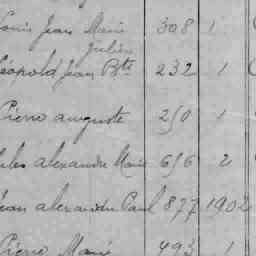 Louis Jean Marie 308 1
Julien
Léopold Jean Bte 232 1
Pierre auguste 250 1
Jules alexandre Marie 656 2
Jean alexandre Paul 877 1902
Pierre Marie 493 1